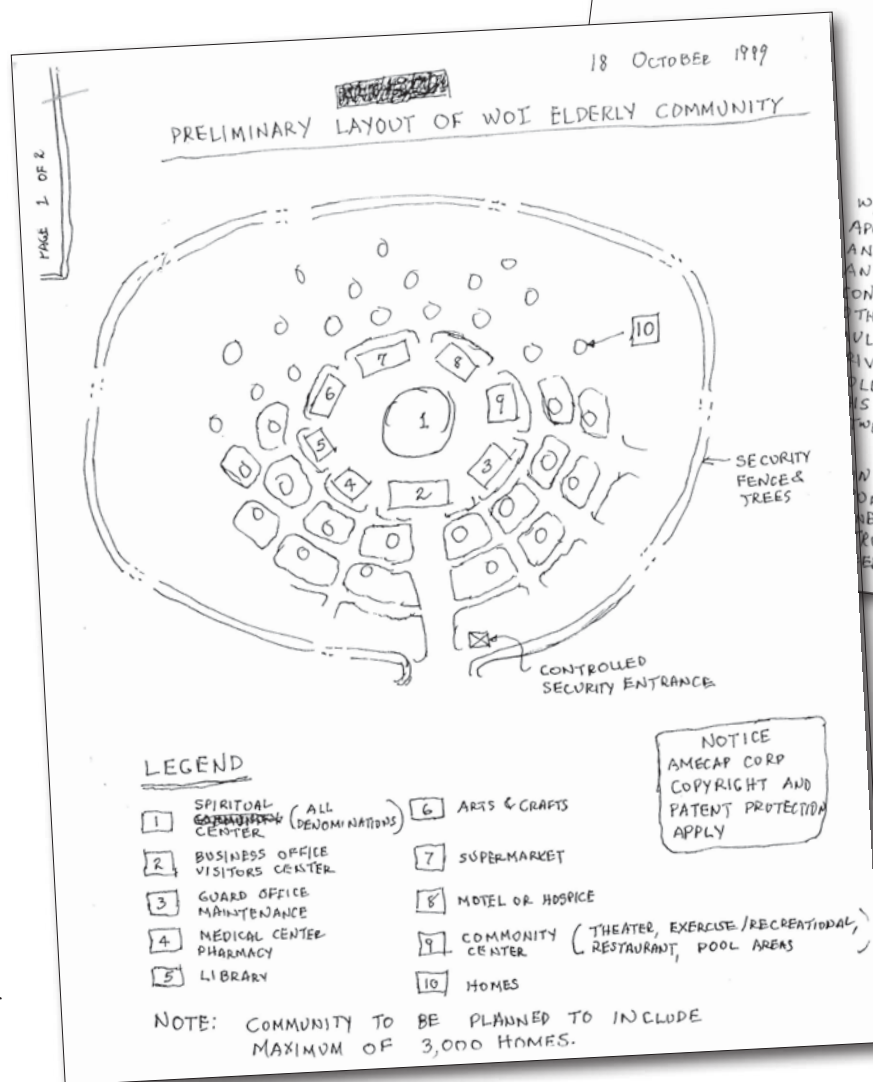 18 OCTOBER 1999
PRELIMINARY LAYOUT OF WOI ELDERLY COMMUNITY
PAGE 1 OF 2
1
2
3
4
5
6
7
8
9
10
SECURITY
FENCE &
TREES
CONTROLLED
SECURITY ENTRANCE
NOTICE
AMECAP CORP
COPYRIGHT AND
PATENT PROTECTION
APPLY
LEGEND
1 SPIRITUAL
CENTER (ALL
DENOMINATIONS)
2 BUSINESS OFFICE
VISITORS CENTER
3 GUARD OFFICE
MAINTENANCE
4 MEDICAL CENTER
PHARMACY
5 LIBRARY
6 ARTS & CRAFTS
7 SUPERMARKET
8 MOTEL OR HOSPICE
9 COMMONITY
CENTER (THEATER, EXERCISE/RECREATIONAL,
RESTAURANT, POOL AREAS)
10 HOMES
NOTE: COMMUNITY TO BE PLANNED TO INCLUDE
MAXIMUM OF 3,000 HOMES.